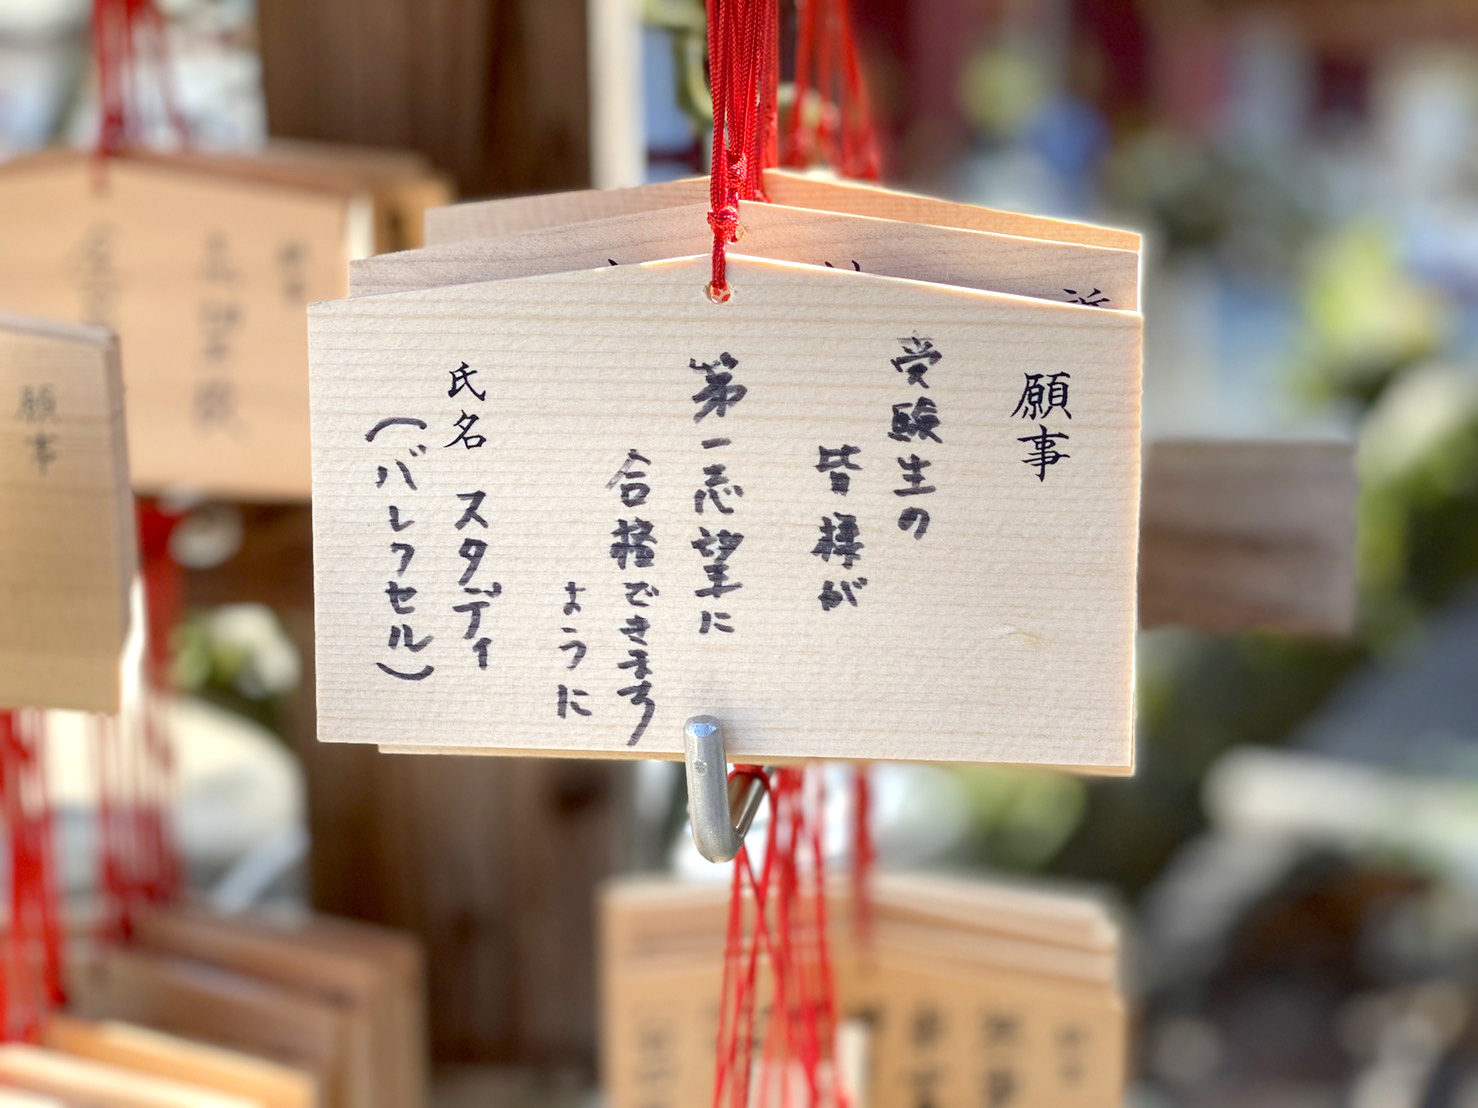 願事
受験生の
皆様が
第一志望に
合格できます
ように
氏名 スタディ
(バレクセル)
願事